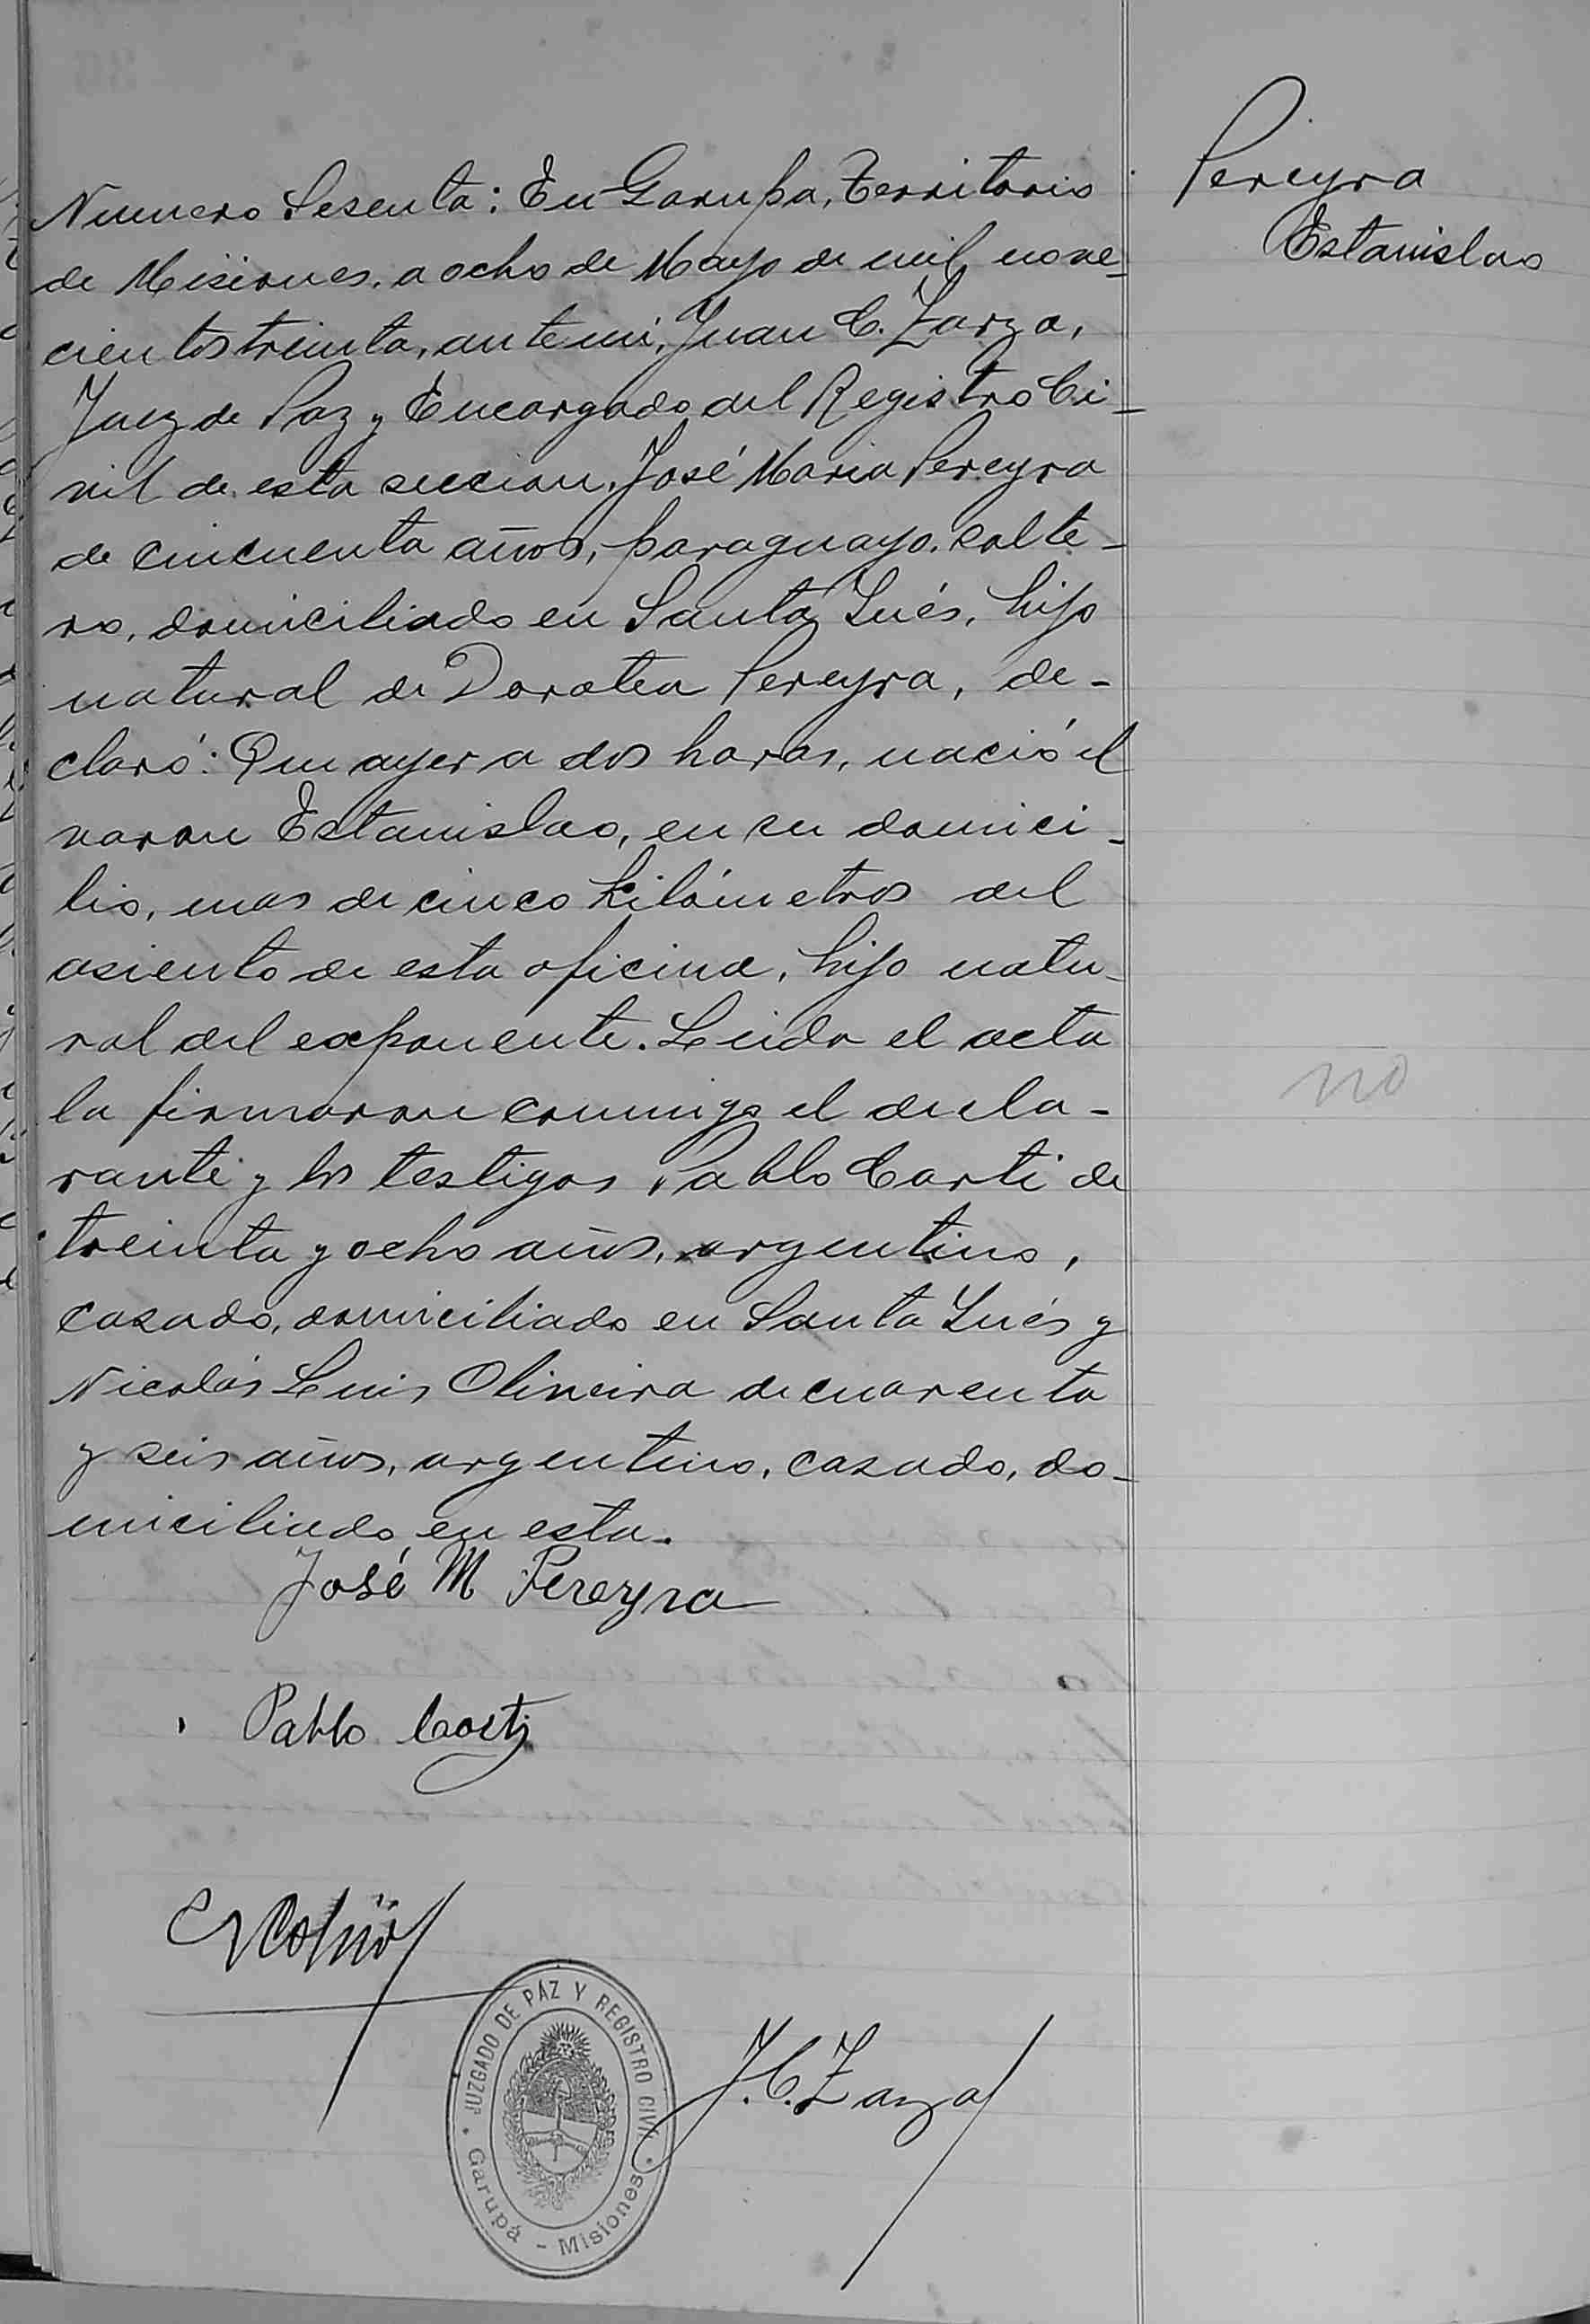 Pereyra
Estanislao
Numero Sesenta: En Garupa, Territorio
de Misiones, a ocho de Mayo de mil nove-
cientos treinta, ante mi, Juan C. Zarza,
Juez de Paz y Encargado del Registro Ci-
vil de esta seccion, José Maria Pereyra
de cincuenta años, paraguayo, solte-
ro, domiciliado en Santa Inés, hijo
natural de Dorotea Pereyra, de-
claró: Que ayer a dos horas, nació el
varon Estanislao, en su domici-
lio, mas de cinco kilómetros del
asiento de esta oficina, hijo natu-
ral del exponente. Leida el acta
la firmaron conmigo el decla-
rante y los testigos Pablo Corti de
treinta y ocho años, argentino,
casado, domiciliado en Santa Inés y
Nicolás Luis Olineira de cuarenta
y seis años, argentino, casado, do-
miciliado en esta.
no
José M Pereyra
Pablo Corti
J.C. Zarza
JUZGADO DE PAZ Y REGISTRO CIVIL
Garupá - Misiones